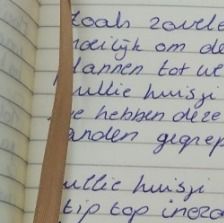 zoals zovele
moeilijk om de
plannen tot we
jullie huisje
we hebben deze
anden gegrep
jullie huisje
tip top incro